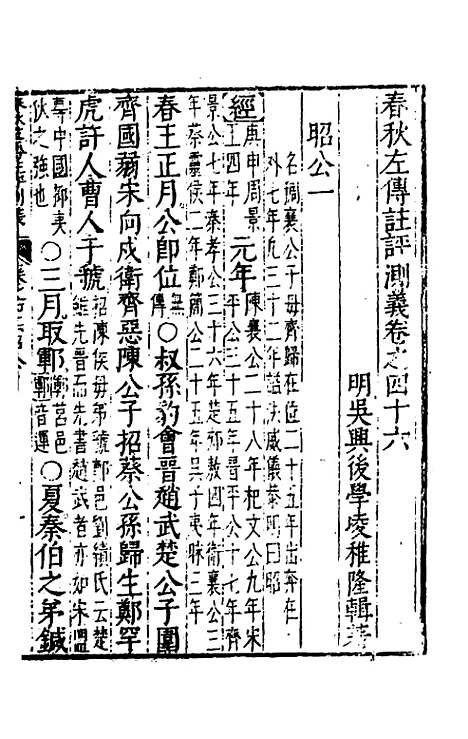 春秋左傳註評測義卷之四十六
明吳興後學凌稚隆輯著
昭公一
名裯襄公子母齊歸在位二十五年出奔在
外七年凡三十二年諡法威儀恭明曰昭
經
庚申周景
王四年
元年
陳襄公二十八年杞文公九年宋
平公三十五年晉平公十七年齊
景公七年秦景公三十六年楚郟敖四年衛襄公三
年蔡靈侯二年鄭簡公二十五年吳子夷昧三年
春王正月公卽位
無
傳
○叔孫豹會晉趙武楚公子圍
齊國弱宋向戌衛齊惡陳公子招蔡公孫歸生鄭罕
虎許人曹人于虢
招陳侯母弟虢鄭邑劉績氏云楚
雖先晉而先書趙武者亦如宋盟
辜中國抑夷
狄之強也
○三月取鄆
鄆莒邑
鄆音運
○夏秦伯之弟鍼